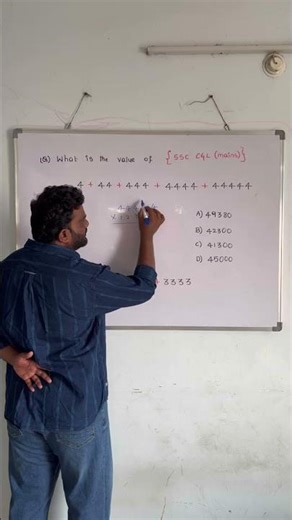 Q) What is the value of {SSC CGL (mains)}
4 + 44 + 444 + 4444 + 44444
A) 49380
B) 42300
C) 41300
D) 45000
+ 3333